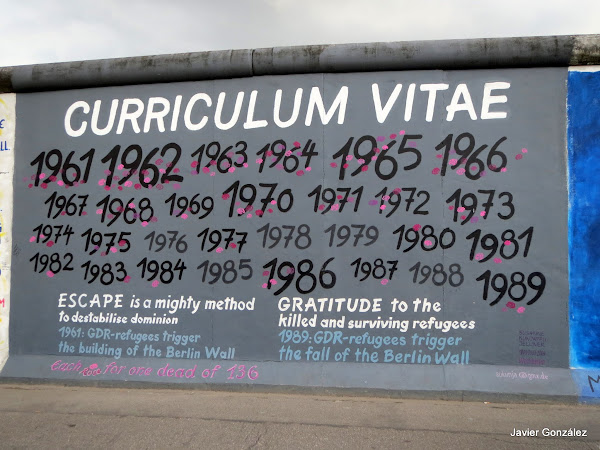 CURRICULUM VITAE
1961 1962 1963 1964 1965 1966
1967 1968 1969 1970 1971 1972 1973
1974 1975 1976 1977 1978 1979 1980 1981
1982 1983 1984 1985 1986 1987 1988 1989
ESCAPE is a mighty method
to destabilise dominion
1961: GDR-refugees trigger
the building of the Berlin Wall
GRATITUDE to the
killed and surviving refugees
1989: GDR-refugees trigger
the fall of the Berlin Wall
Each for one dead of 136
Javier González